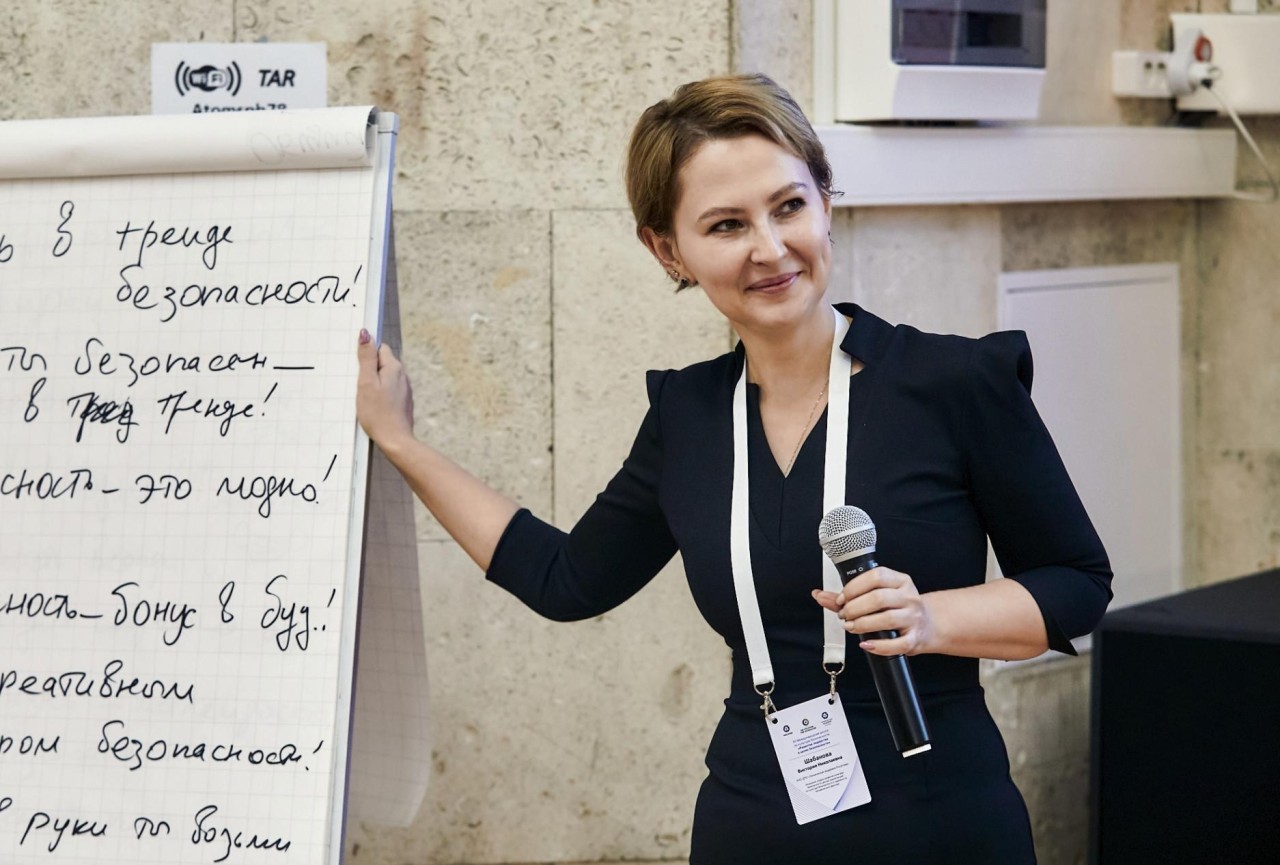 WiFi TAR
Atomsph78
ь в тренде
безопасности!
ты безопасен —
в тренде!
сность – это модно!
ность – бонус в буд.!
реативным
ром безопасности!
в руки ты возьми
Шабанова
Виктория Николаевна